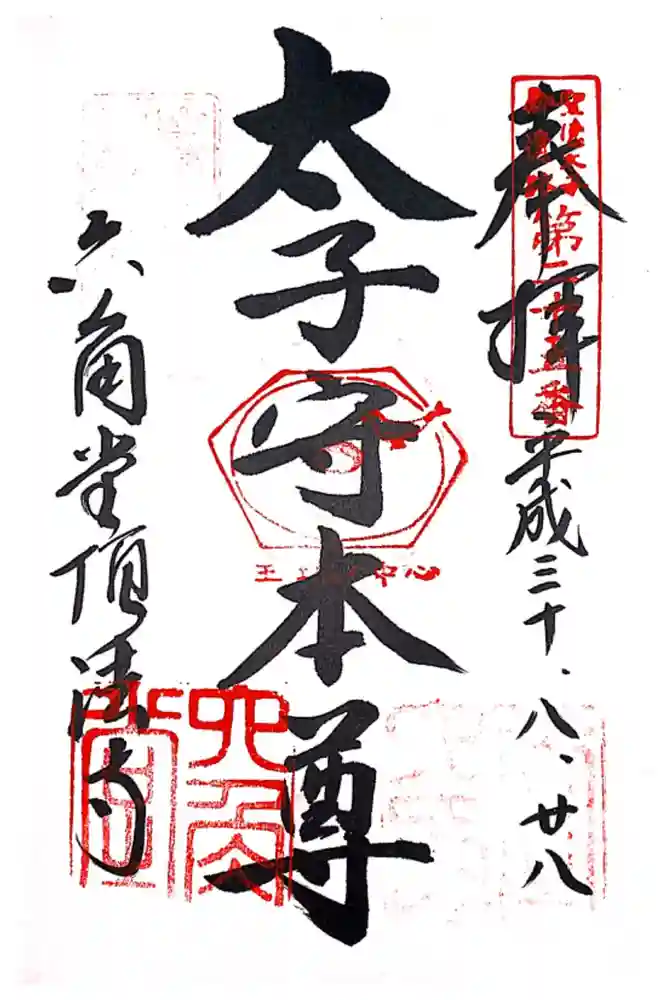 奉拝
平成三十、八、廿八
第二十五番
太子守本尊
六角堂頂法寺
六角堂